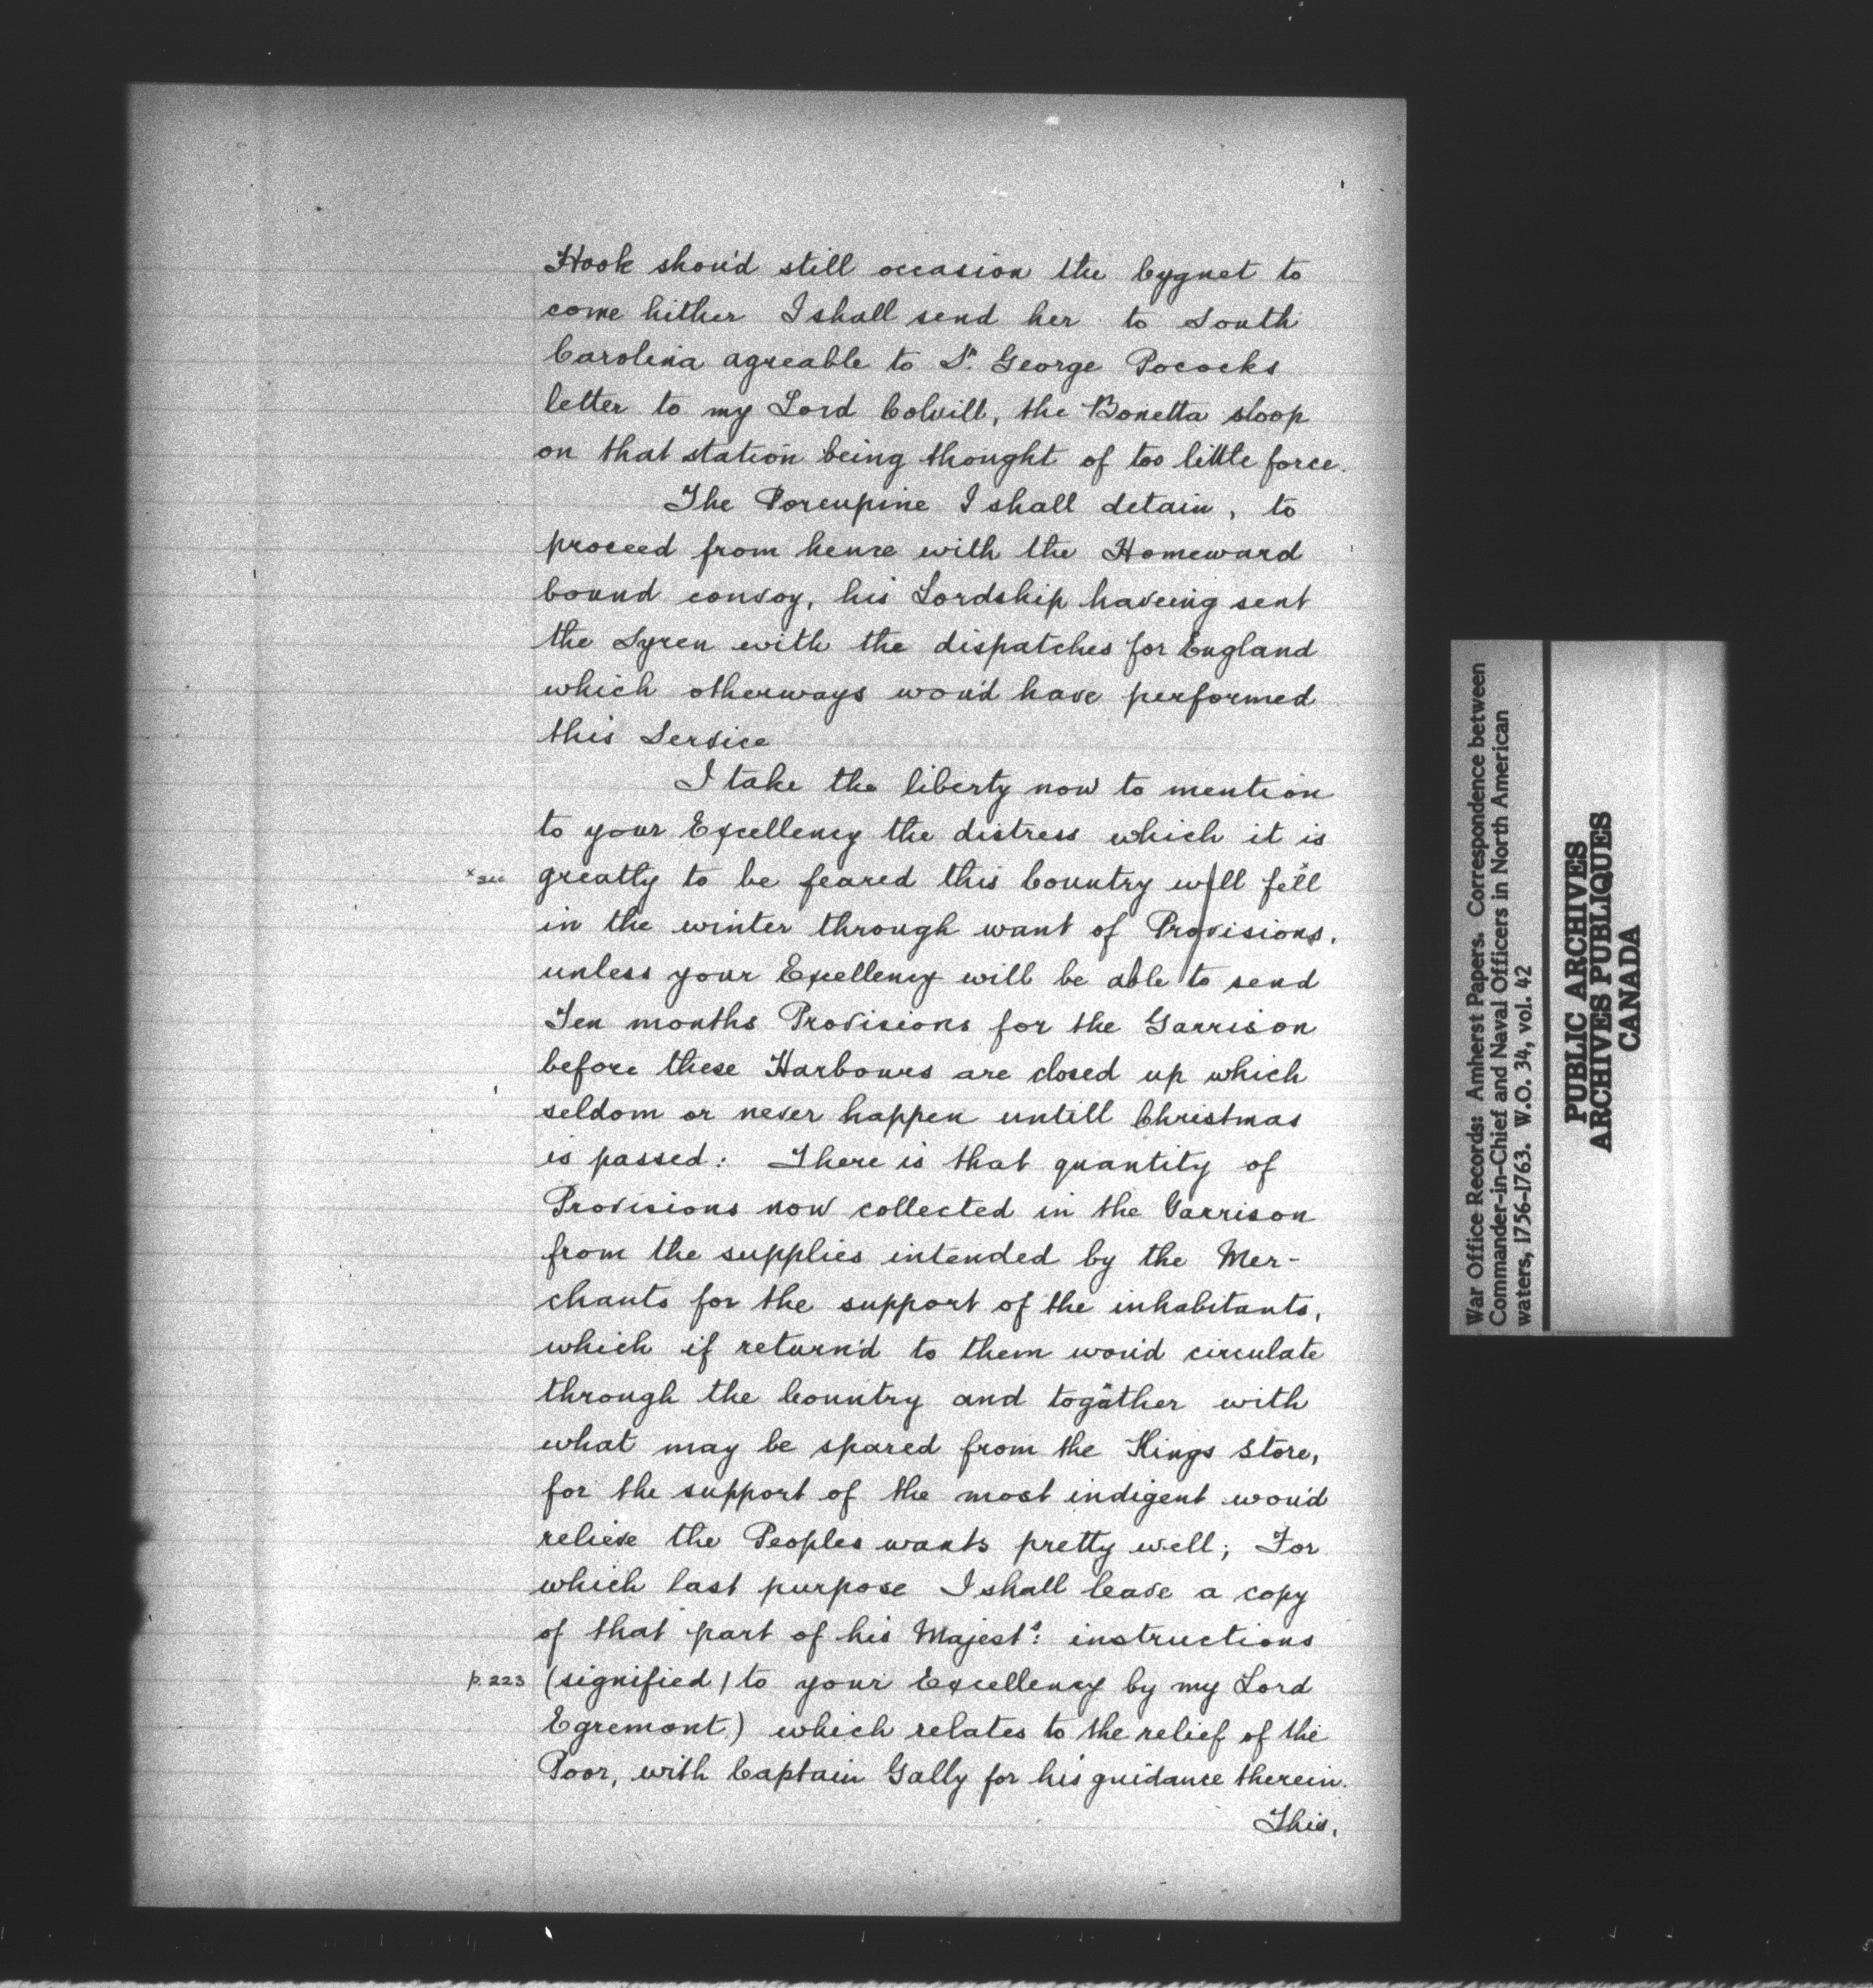 Hook shou'd still occasion the Cygnet to
come hither I shall send her to South
Carolina agreable to Sr. George Pococks
letter to my Lord Colvill, the Bonetta sloop
on that station being thought of too little force.
The Porcupine I shall detain, to
proceed from hence with the Homeward
bound convoy, his Lordship haveing sent
the Syren with the dispatches for England
which otherways wou'd have performed
this Service
I take the liberty now to mention
to your Excellency the distress which it is
x sic greatly to be feared this Country will fëll
in the winter through want of Provisions,
unless your Excellency will be able to send
Ten months Provisions for the Garrison
before these Harbours are closed up which
seldom or never happen untill Christmas
is passed: There is that quantity of
Provisions now collected in the Garrison
from the supplies intended by the Mer-
chants for the support of the inhabitants,
which if return'd to them wou'd circulate
through the Country and togather with
what may be spared from the Kings Store,
for the support of the most indigent wou'd
relieve the Peoples wants pretty well; For
which last purpose I shall leave a copy
of that part of his Majest's: instructions
p. 223 (signified / to your Excellency by my Lord
Egremont) which relates to the relief of the
Poor, with Captain Gally for his guidance therein.
This,
War Office Records: Amherst Papers. Correspondence between
Commander-in-Chief and Naval Officers in North American
waters, 1756-1763. W.O. 34, vol. 42
PUBLIC ARCHIVES
ARCHIVES PUBLIQUES
CANADA